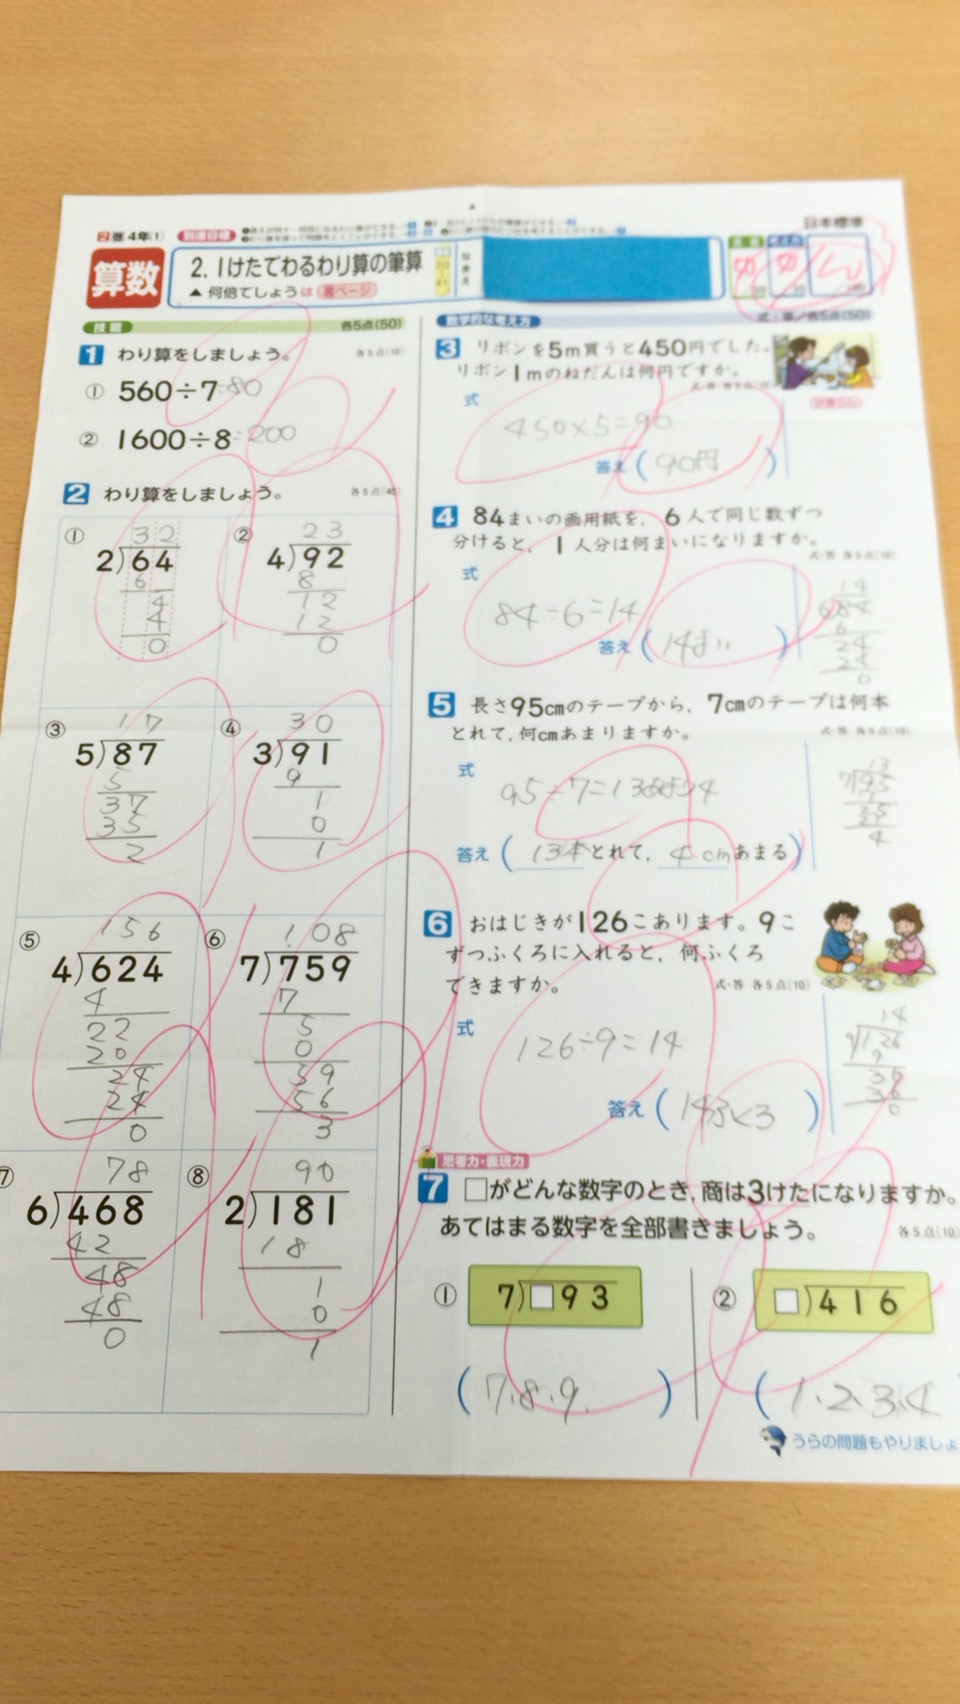 2 啓 4年(1)
到達目標
日本標準
算数
2. 1けたでわるわり算の筆算
▲ 何倍でしょうは 裏ページ
技能
各5点(50)
1 わり算をしましょう。
各5点(10)
① 560÷7=80
② 1600÷8=200
2 わり算をしましょう。
各5点(40)
①
32
2)64
6
4
4
0
②
23
4)92
8
12
12
0
③
17
5)87
5
37
35
2
④
30
3)91
9
1
0
1
⑤
156
4)624
4
22
20
24
24
0
⑥
108
7)759
7
5
0
59
56
3
⑦
78
6)468
42
48
48
0
⑧
90
2)181
18
1
0
1
数学的な考え方
式・答/各5点(50)
3 リボンを5m買うと450円でした。
リボン1mのねだんは何円ですか。
式・答 各5点(10)
式
450×5=90
答え(90円)
4 84まいの画用紙を、6人で同じ数ずつ
分けると、1人分は何まいになりますか。
式・答 各5点(10)
式
84÷6=14
答え(14まい)
14
6)84
6
24
24
0
5 長さ95cmのテープから、7cmのテープは何本
とれて、何cmあまりますか。
式・答 各5点(10)
式
95÷7=13あまり4
答え(13本とれて、4cmあまる)
13
7)95
7
25
4
6 おはじきが126こあります。9こ
ずつふくろに入れると、何ふくろ
できますか。
式・答 各5点(10)
式
126÷9=14
答え(14ふくろ)
14
9)126
9
36
36
0
思考力・表現力
7 □がどんな数字のとき、商は3けたになりますか。
あてはまる数字を全部書きましょう。
各5点(10)
① 7)□93
(7.8.9.)
② □)416
(1.2.3.4
うらの問題もやりましょ